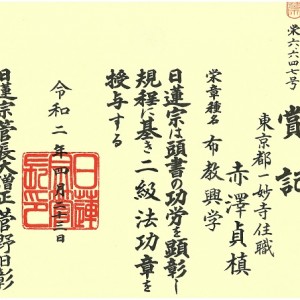 栄六六四七号
賞記
東京都一妙寺住職
赤澤貞槙
栄章種名 布教興学
日蓮宗は頭書の功労を顕彰し
規程に基き二級法功章を
授与する
令和二年四月二十三日
日蓮宗管長大僧正 菅野日彰
日蓮宗管長之印